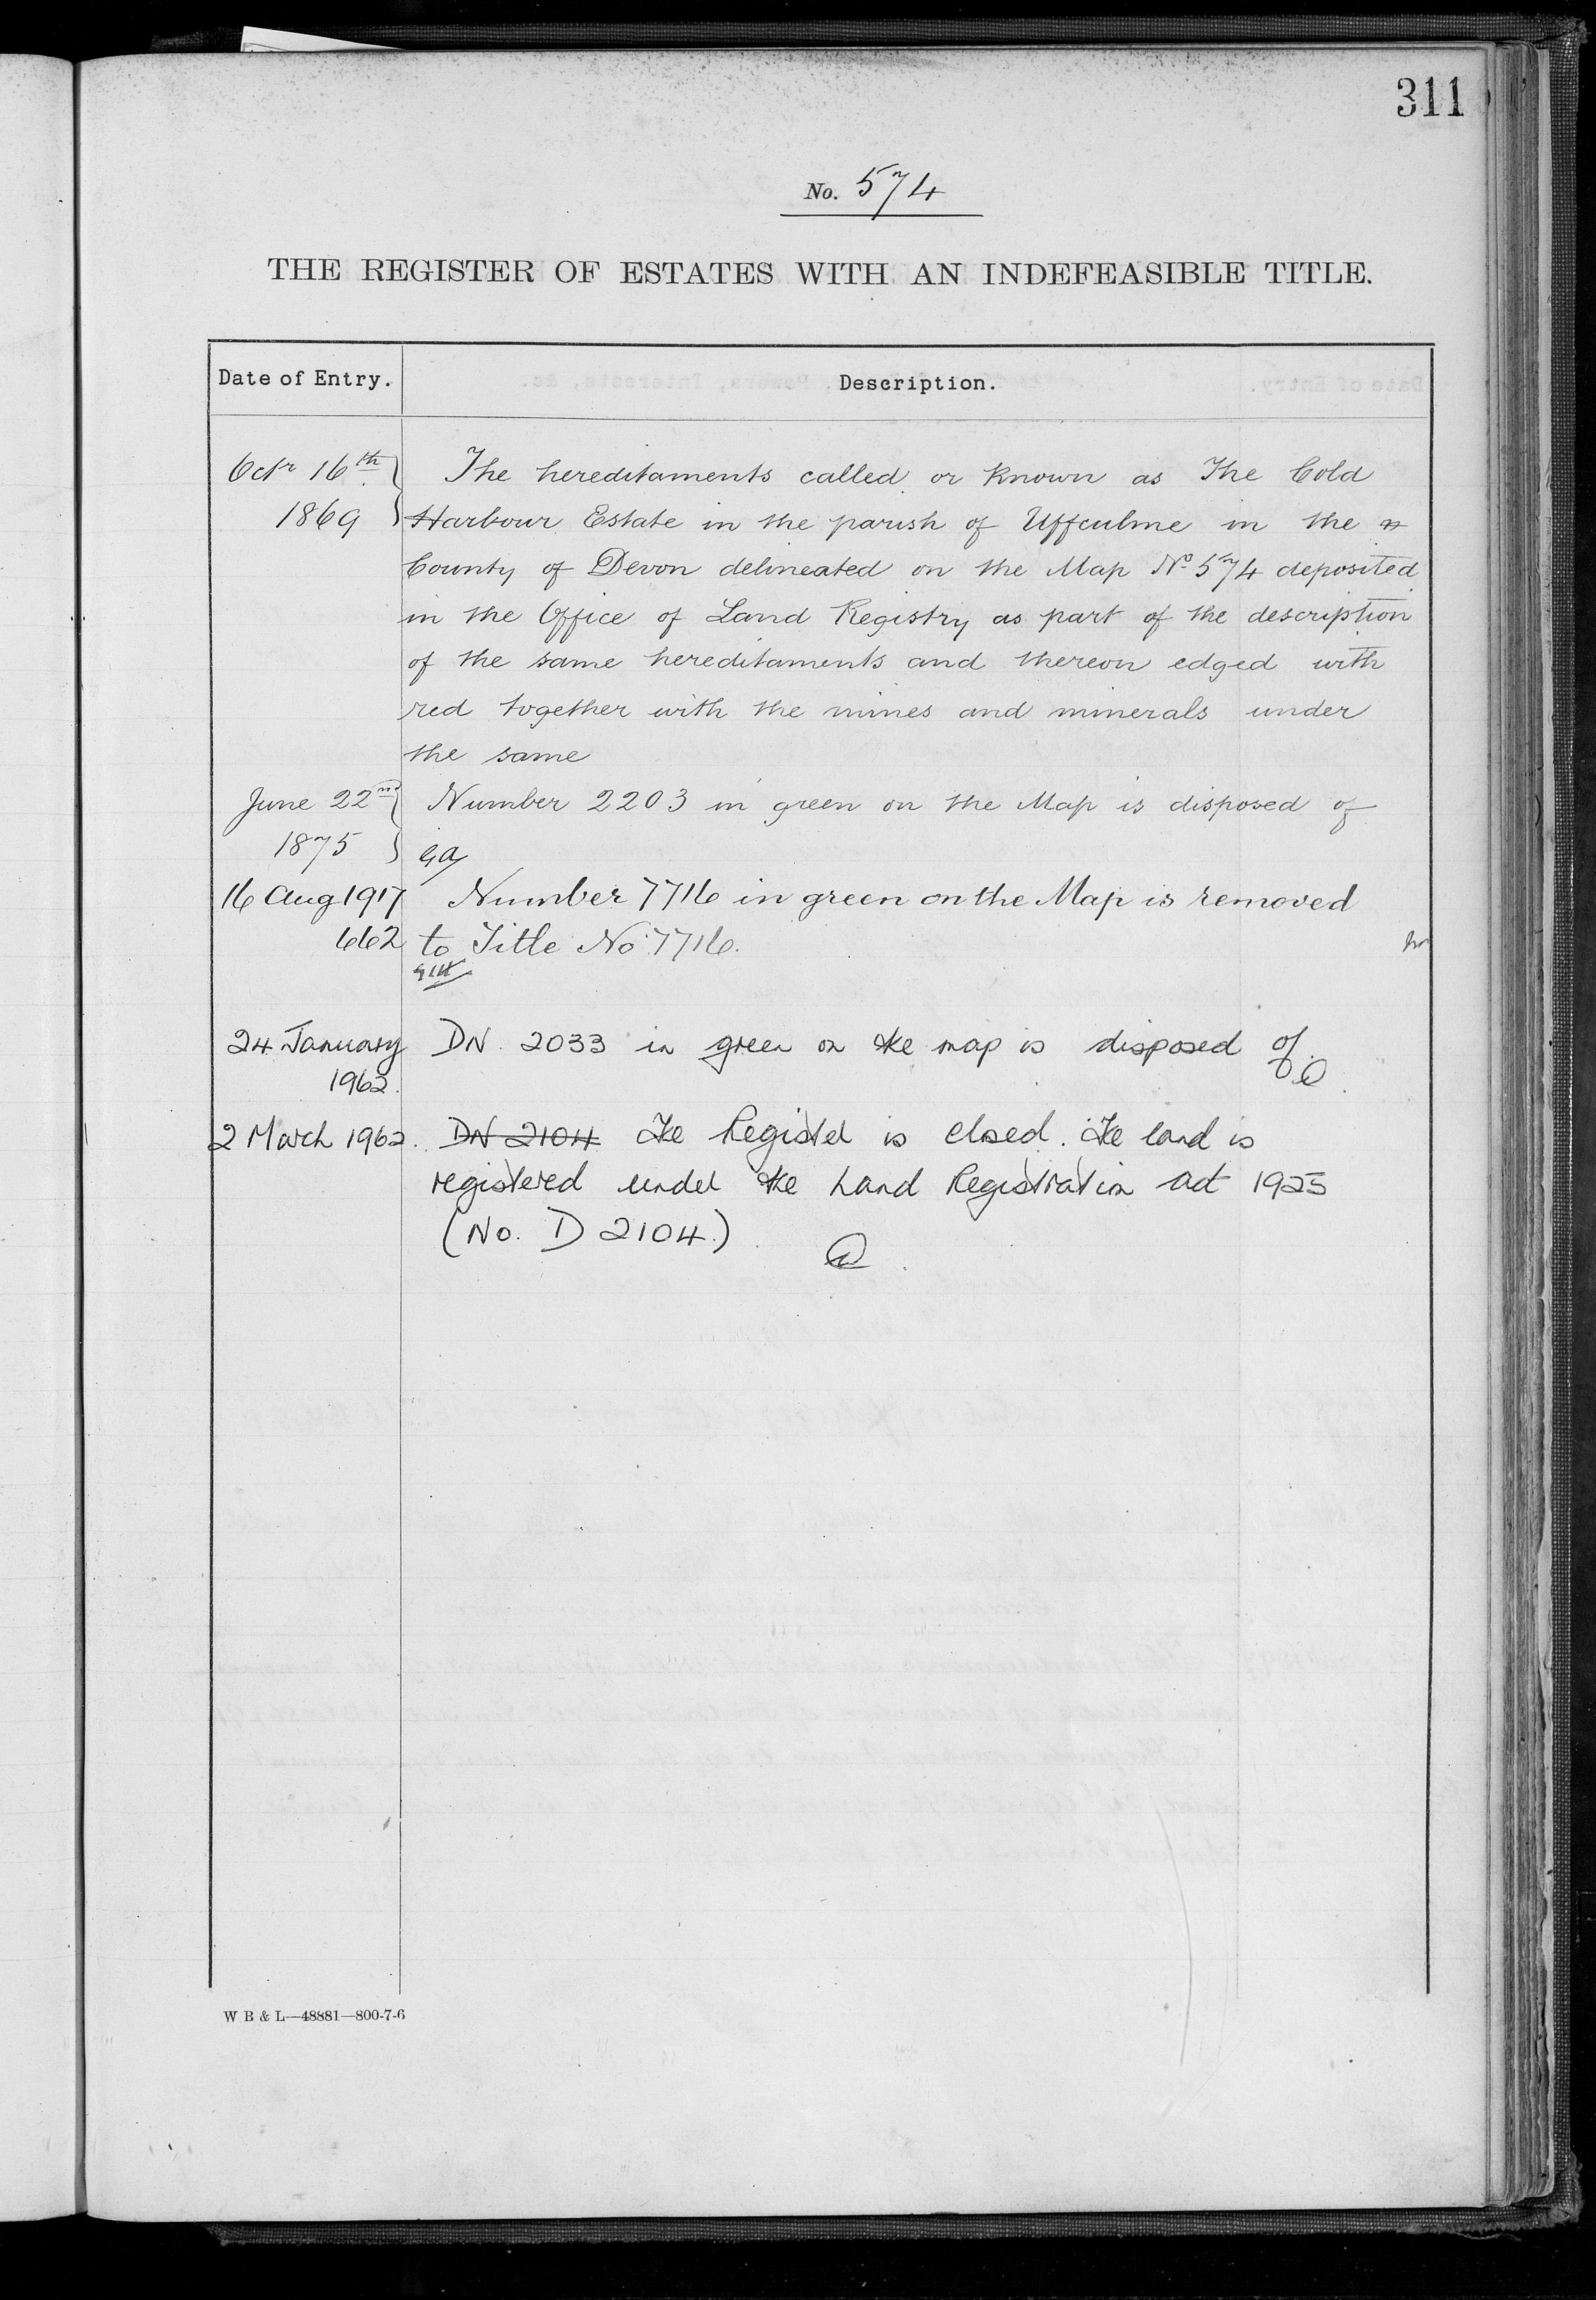 311
No. 574
THE REGISTER OF ESTATES WITH AN INDEFEASIBLE TITLE.
Date of Entry. Description.
Octr 16th 1869 The hereditaments called or known as The Cold
Harbour Estate in the parish of Uffculme in the
County of Devon delineated on the Map No 574 deposited
in the Office of Land Registry as part of the description
of the same hereditaments and thereon edged with
red together with the mines and minerals under
the same
June 22nd 1875 Number 2203 in green on the Map is disposed of
16 Aug 1917 Number 7716 in green on the Map is removed
662 to Title No 7716.
24 January 1962. DN 2033 in green on the map is disposed of.
2 March 1962. DN 2104 The Register is closed. The land is
registered under the Land Registration Act 1925
(No. D 2104.)
W B & L—48881—800-7-6